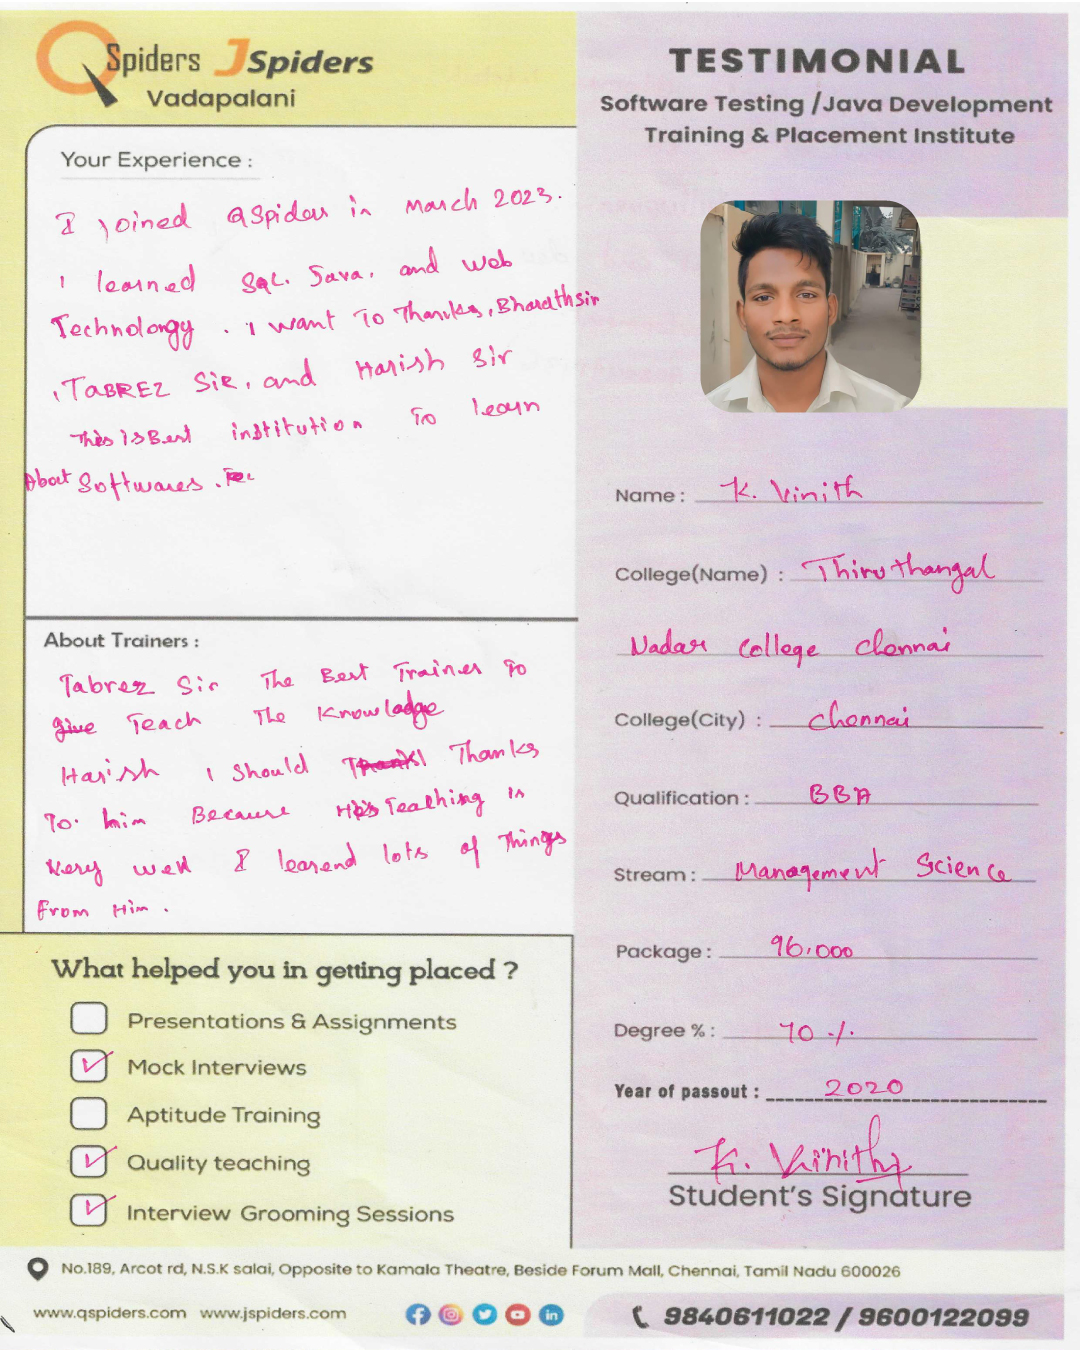 QSpiders JSpiders
Vadapalani
Your Experience :
I joined QSpider in March 2023.
I learned SQL. Java, and Web
Technolorgy . I want To Thanks, Bharathsir
, TABREZ SIR, and Harish Sir
This is Best institution To learn
About Softwares .
About Trainers :
Tabrez Sir The Best Trainer To
give Teach The Knowladge
Harish I Should Thank Thanks
To him Because His Teaching is
Very well I learend lots of Things
From Him .
What helped you in getting placed ?
Presentations & Assignments
Mock Interviews
Aptitude Training
Quality teaching
Interview Grooming Sessions
TESTIMONIAL
Software Testing /Java Development
Training & Placement Institute
Name : K. Vinith
College(Name) : Thiruthangal
Nadar College Chennai
College(City) : Chennai
Qualification : BBA
Stream : Management Science
Package : 96,000
Degree % : 70 %
Year of passout : 2020
K. Vinith
Student's Signature
No.189, Arcot rd, N.S.K salai, Opposite to Kamala Theatre, Beside Forum Mall, Chennai, Tamil Nadu 600026
www.qspiders.com www.jspiders.com
9840611022 / 9600122099